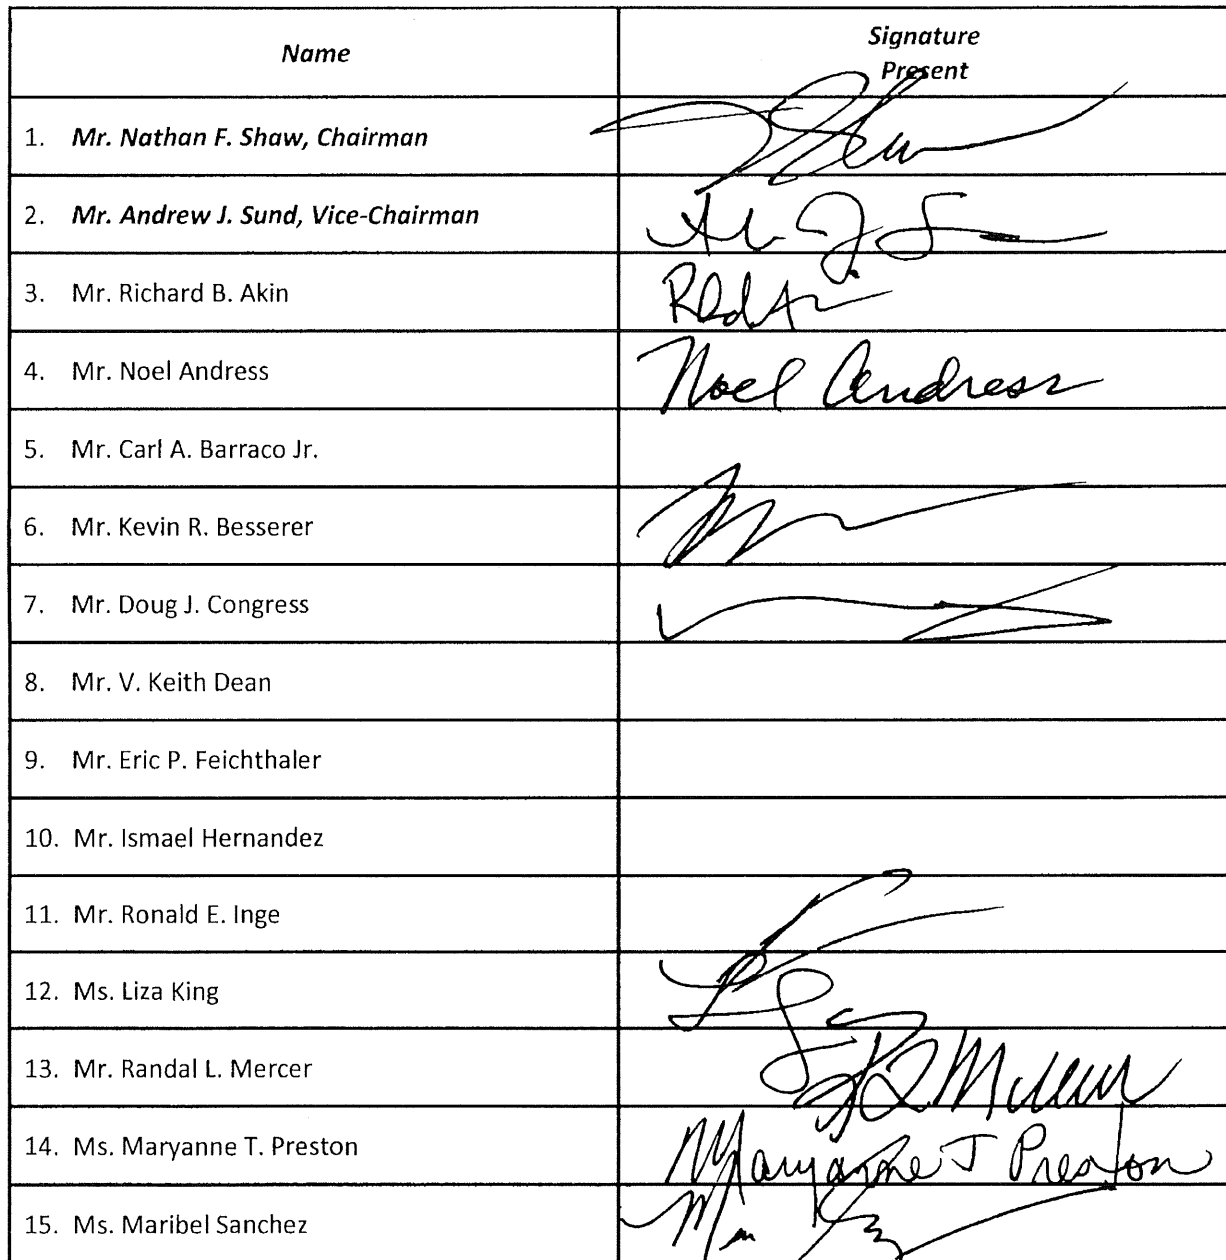 Name
Signature
Present
1. Mr. Nathan F. Shaw, Chairman
2. Mr. Andrew J. Sund, Vice-Chairman
3. Mr. Richard B. Akin
4. Mr. Noel Andress
Noel Andress
5. Mr. Carl A. Barraco Jr.
6. Mr. Kevin R. Besserer
7. Mr. Doug J. Congress
8. Mr. V. Keith Dean
9. Mr. Eric P. Feichthaler
10. Mr. Ismael Hernandez
11. Mr. Ronald E. Inge
12. Ms. Liza King
13. Mr. Randal L. Mercer
14. Ms. Maryanne T. Preston
Maryanne T Preston
15. Ms. Maribel Sanchez